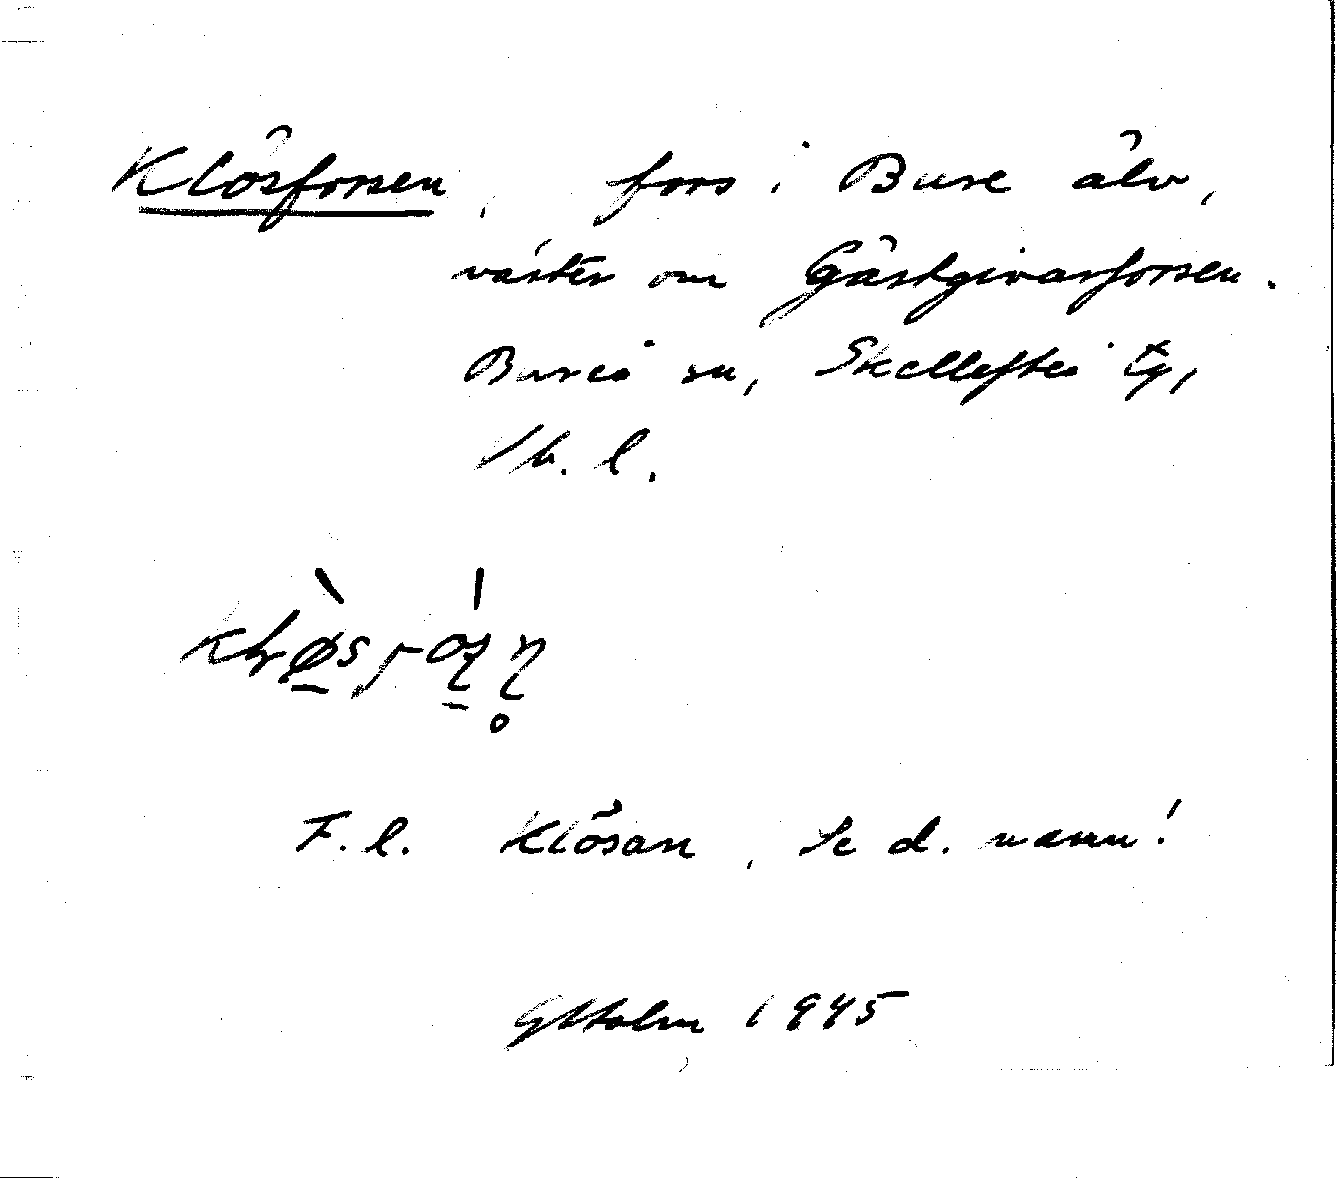 Klösforsen, fors i Bure älv,
väster om Gästgivarforsen.
Bureå sn, Skellefteå tg,
Vb. l.
F. l. Klösan, se d. namn!
GHolm 1945